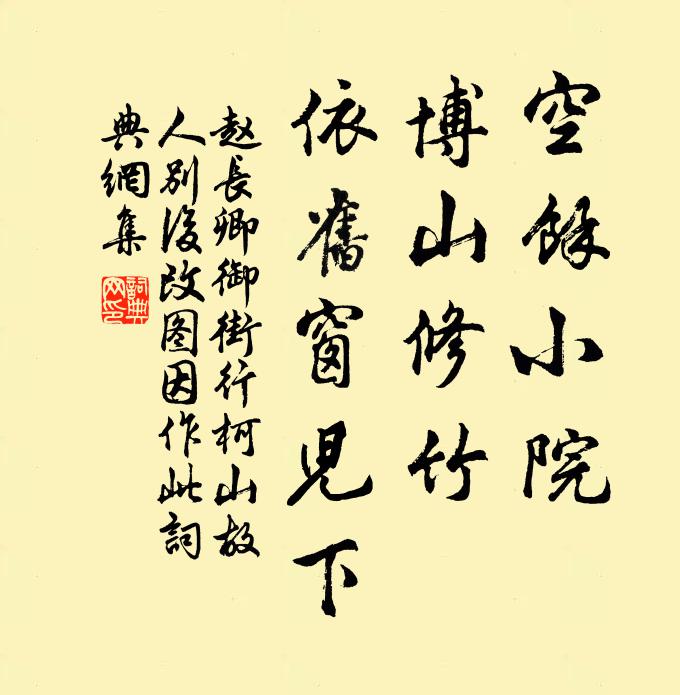 空餘小院
博山修竹
依舊窗兒下
赵長卿御街行柯山故
人别後改图因作此詞
典網集
詞典网印